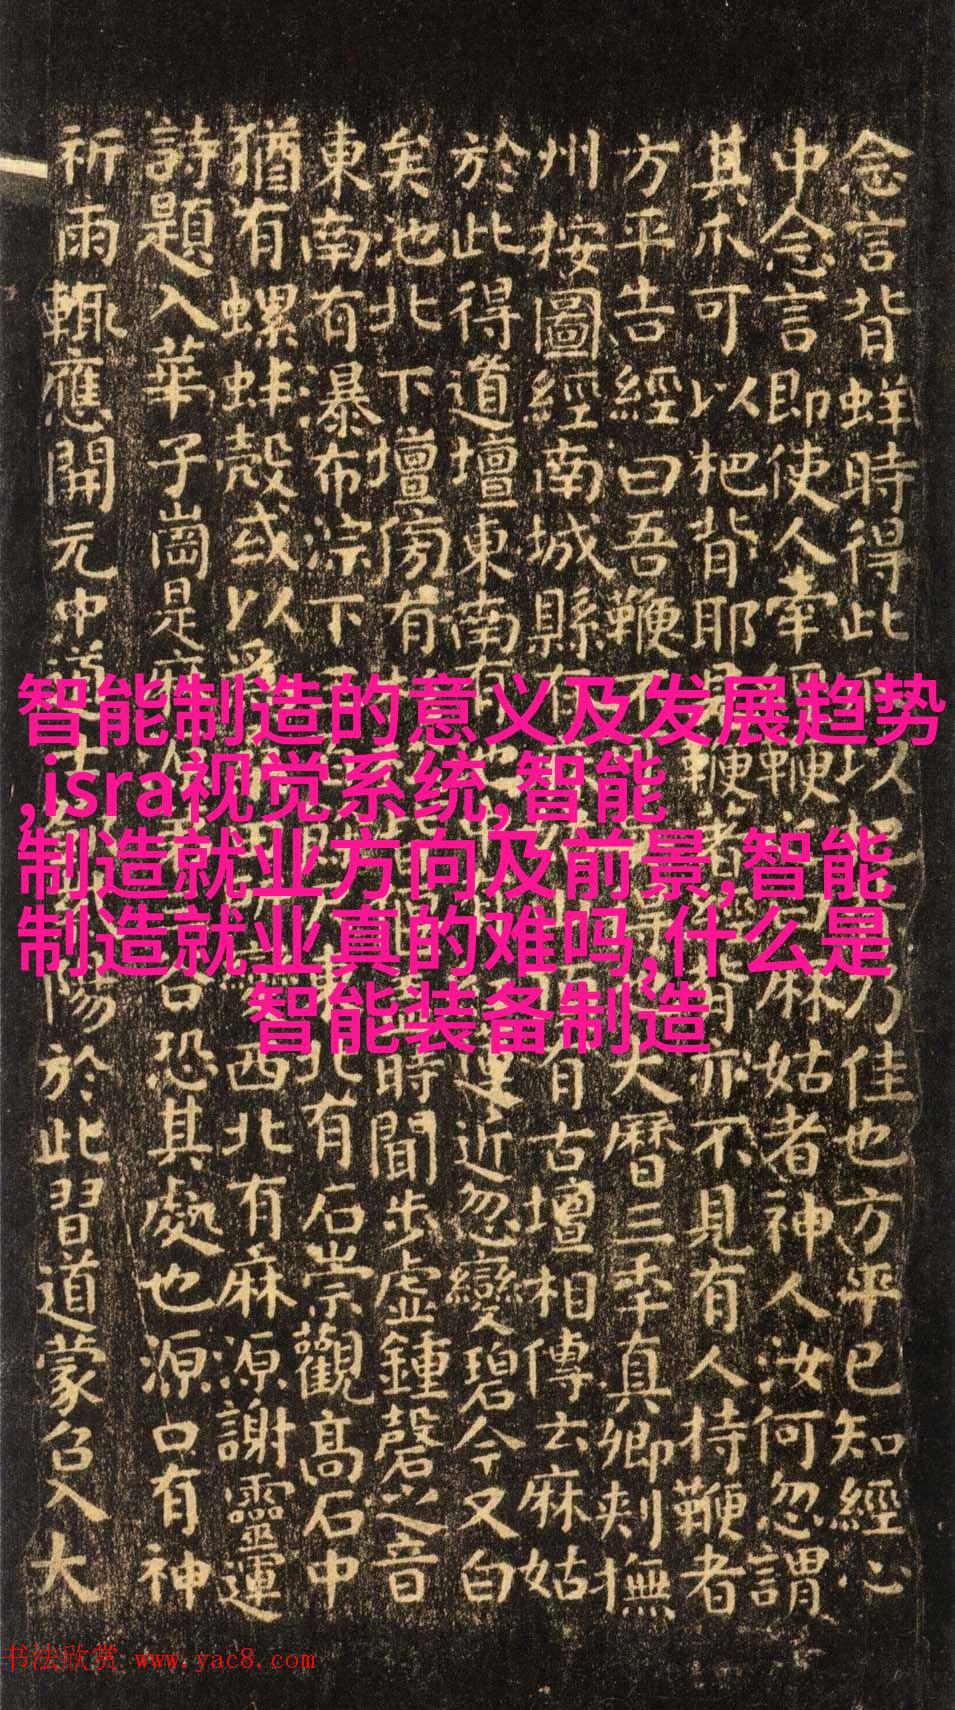 念言背蛘時得此以把背乃佳也方平已知經心
中念言即使人牽經鞭麻姑者神人汝何忽謂
其爪可以杷背耶見鞭著背亦不見有人持鞭者
方平告經曰吾鞭不大曆三年真卿刺撫
州按圖經南城縣有有古壇相傳云麻姑
於此得道壇東南有蓮近忽變碧今又白
矣池北下壇傍有時聞步虛鍾磬之音
東南有瀑布淙下東北有石崇觀高石中
猶有螺蚌殼或以為西北有麻源謝靈運
詩題入華子崗是麻源谷恐其處也源口有神
祈雨輒應開元中道士陽於此習道蒙召入大
智能制造的意义及发展趋势
,isra视觉系统,智能
制造就业方向及前景,智能
制造就业真的难吗,什么是
智能装备制造
书法欣赏 www.yac8.com